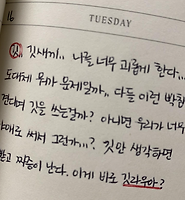 16
TUESDAY
깃새끼.. 나를 너무 괴롭게 한다...
도대체 뭐가 문제일까.. 다들 이런 박함
견디며 깃을 쓰는걸까? 아니면 우리가 너무
야매로 써서 그런가...? 깃만 생각하면
받고 짜증이 난다. 이게 바로 깃라우마?